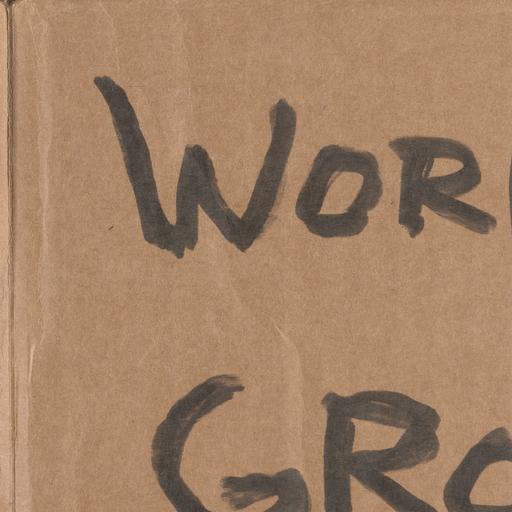 WOR
GRO